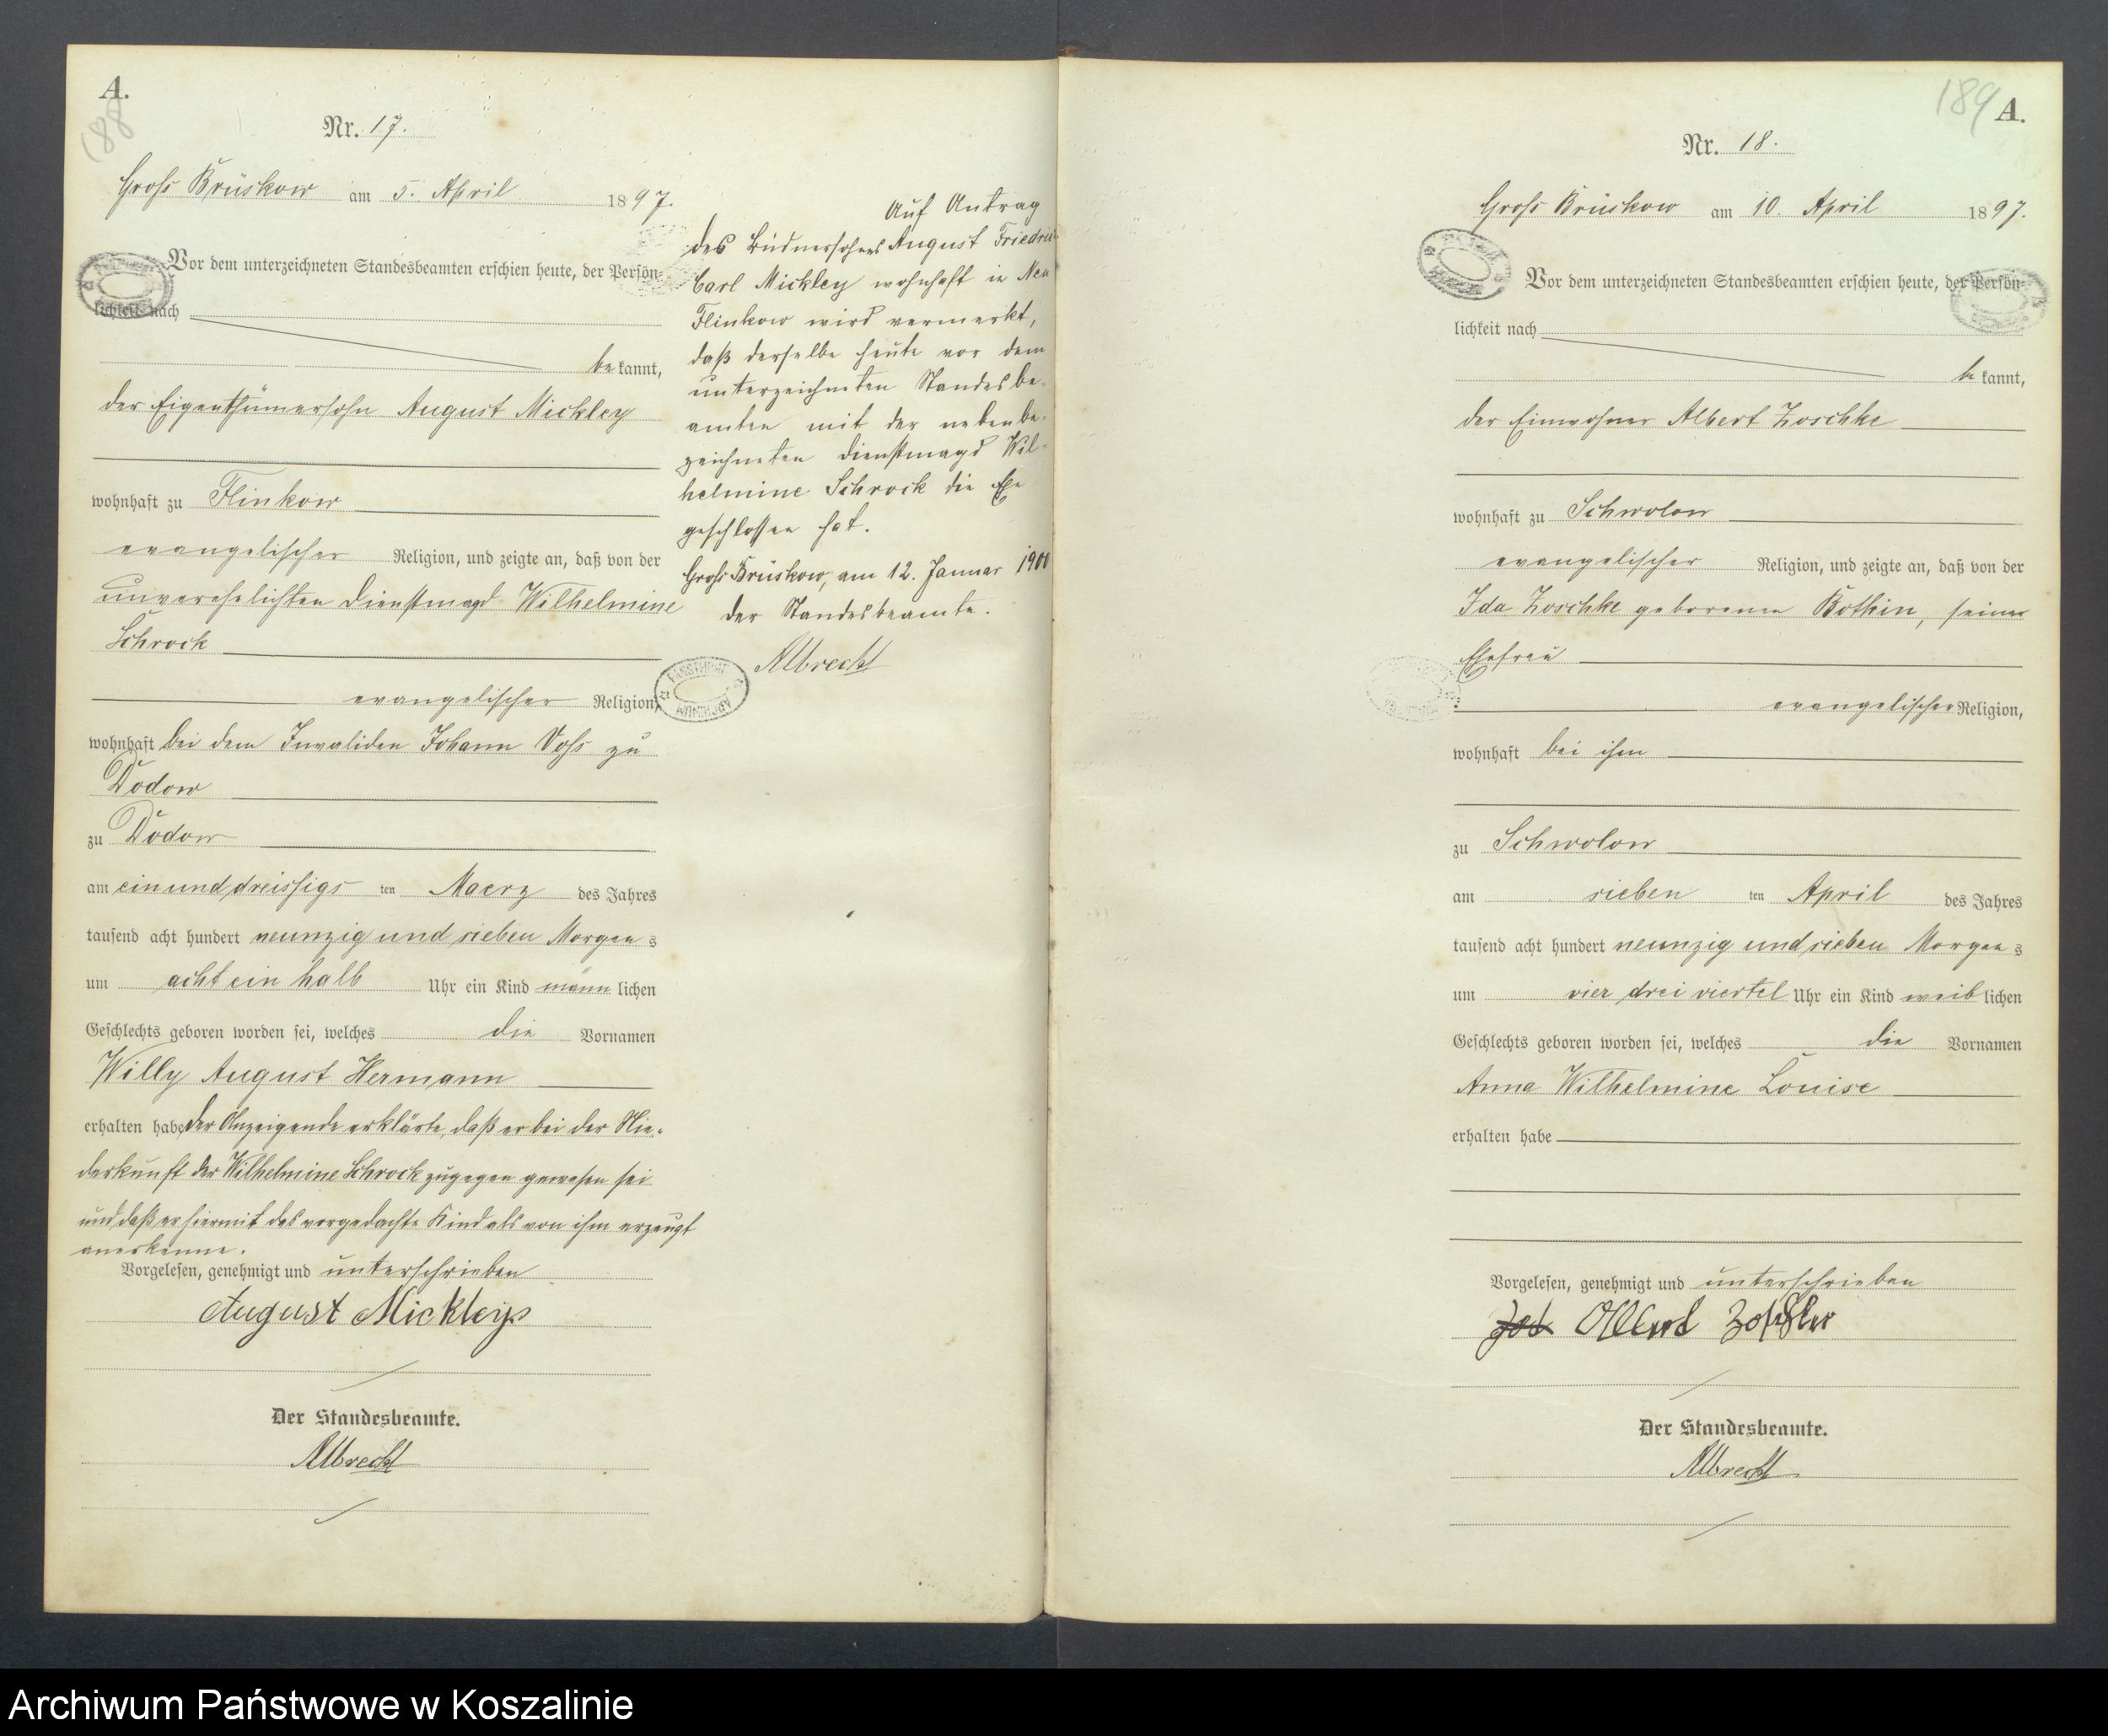 A.
188
Nr. 17.
Groß Brüskow am 5. April 1897.
Vor dem unterzeichneten Standesbeamten erschien heute, der Persön-
lichkeit nach
be kannt,
der Eigenthümersohn August Mickley
wohnhaft zu Flinkow
evangelischer Religion, und zeigte an, daß von der
unverehelichten Dienstmagd Wilhelmine
Schrock
evangelischer Religion,
wohnhaft bei dem Invaliden Johann Voß zu
Dodow
zu Dodow
am einunddreissigs ten Maerz des Jahres
tausend acht hundert neunzig und sieben Morgen s
um acht ein halb Uhr ein Kind männ lichen
Geschlechts geboren worden sei, welches die Vornamen
Willy August Hermann
erhalten habe der Anzeigende erklärte, daß er bei der Nie-
derkunft der Wilhelmine Schrock zugegen gewesen sei
und daß er hiermit das vorgedachte Kind als von ihm erzeugt
anerkenne.
Vorgelesen, genehmigt und unterschrieben
August Mickley
Der Standesbeamte.
Albrecht
Auf Antrag
des Büdnersohnes August Friedrich
Carl Mickley wohnhaft in Neu
Flinkow wird vermerkt,
daß derselbe heute vor dem
unterzeichneten Standesbe-
amten mit der nebenbe-
zeichneten Dienstmagd Wil-
helmine Schrock die Ehe
geschlossen hat.
Groß Brüskow, am 12. Januar 1900
Der Standesbeamte.
Albrecht
189 A.
Nr. 18.
Groß Brüskow am 10. April 1897.
Vor dem unterzeichneten Standesbeamten erschien heute, der Persön-
lichkeit nach
be kannt,
der Einwohner Albert Zoschke
wohnhaft zu Schwolow
evangelischer Religion, und zeigte an, daß von der
Ida Zoschke geborenen Bothin, seiner
Ehefrau
evangelischer Religion,
wohnhaft bei ihm
zu Schwolow
am sieben ten April des Jahres
tausend acht hundert neunzig und sieben Morgen s
um vier drei viertel Uhr ein Kind weib lichen
Geschlechts geboren worden sei, welches die Vornamen
Anna Wilhelmine Louise
erhalten habe
Vorgelesen, genehmigt und unterschrieben
Albert Zoschke
Der Standesbeamte.
Albrecht
Archiwum Państwowe w Koszalinie